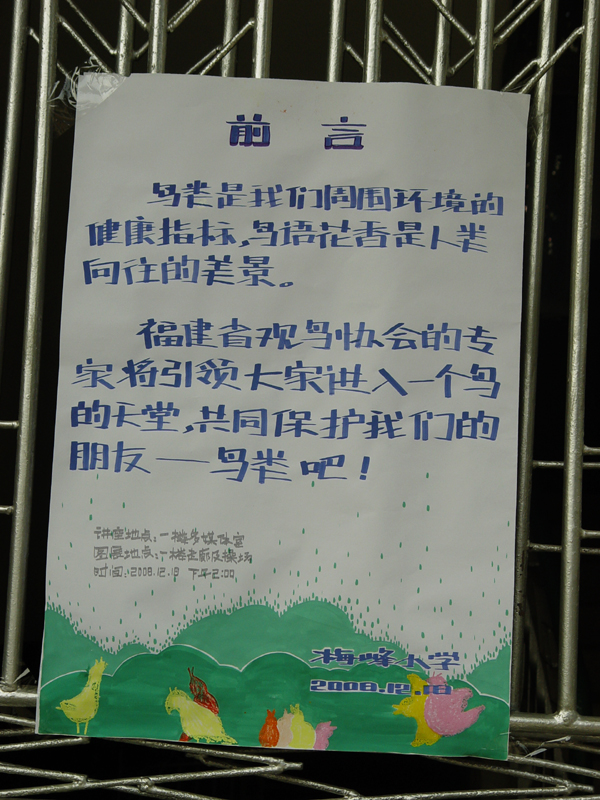 前言
鸟类是我们周围环境的
健康指标,鸟语花香是人类
向往的美景。
福建省观鸟协会的专
家将引领大家进入一个鸟
的天堂,共同保护我们的
朋友一鸟类吧!
讲座地点:一楼多媒体室
图展地点:一楼走廊及操场
时间:2008.12.18 下午2:00
梅峰小学
2008.12.18